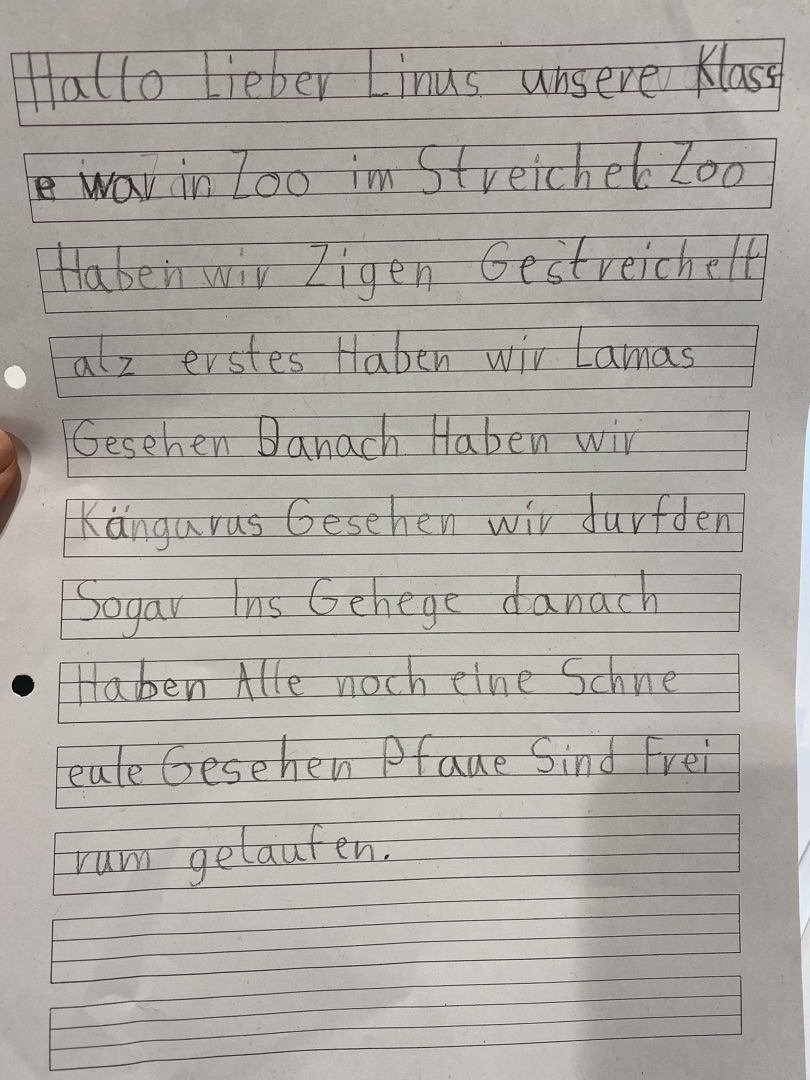 Hallo Lieber Linus unsere Klass
e war in Zoo im Streichel Zoo
Haben wir Zigen Gestreichelt
alz erstes Haben wir Lamas
Gesehen Danach Haben wir
Kängarus Gesehen wir durfden
Sogar Ins Gehege danach
Haben Alle noch eine Schne
eule Gesehen Pfaue Sind Frei
rum gelaufen.